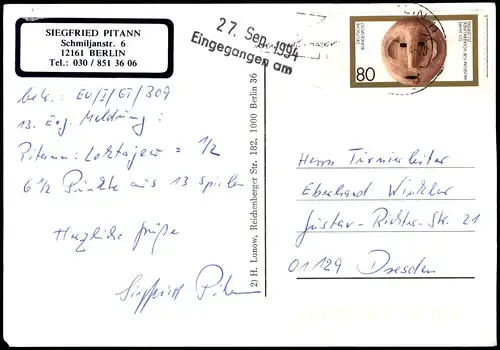 SIEGFRIED PITANN
Schmiljanstr. 6
12161 BERLIN
Tel.: 030 / 851 36 06
27. Sep. 1994
Eingegangen am
80
DEUTSCHE BUNDESPOST
betr.: EU/I/GT/309
13. Erg. Meldung:
Pitann: Loktajew = 1/2
6 1/2 Punkte aus 13 Spielen
Herzliche Grüße
Siegfried Pitann
2) H. Lunow, Reichenberger Str. 182, 1000 Berlin 36
Herrn Turnierleiter
Eberhard Winkler
Gustav-Richter-Str. 21
01129 Dresden